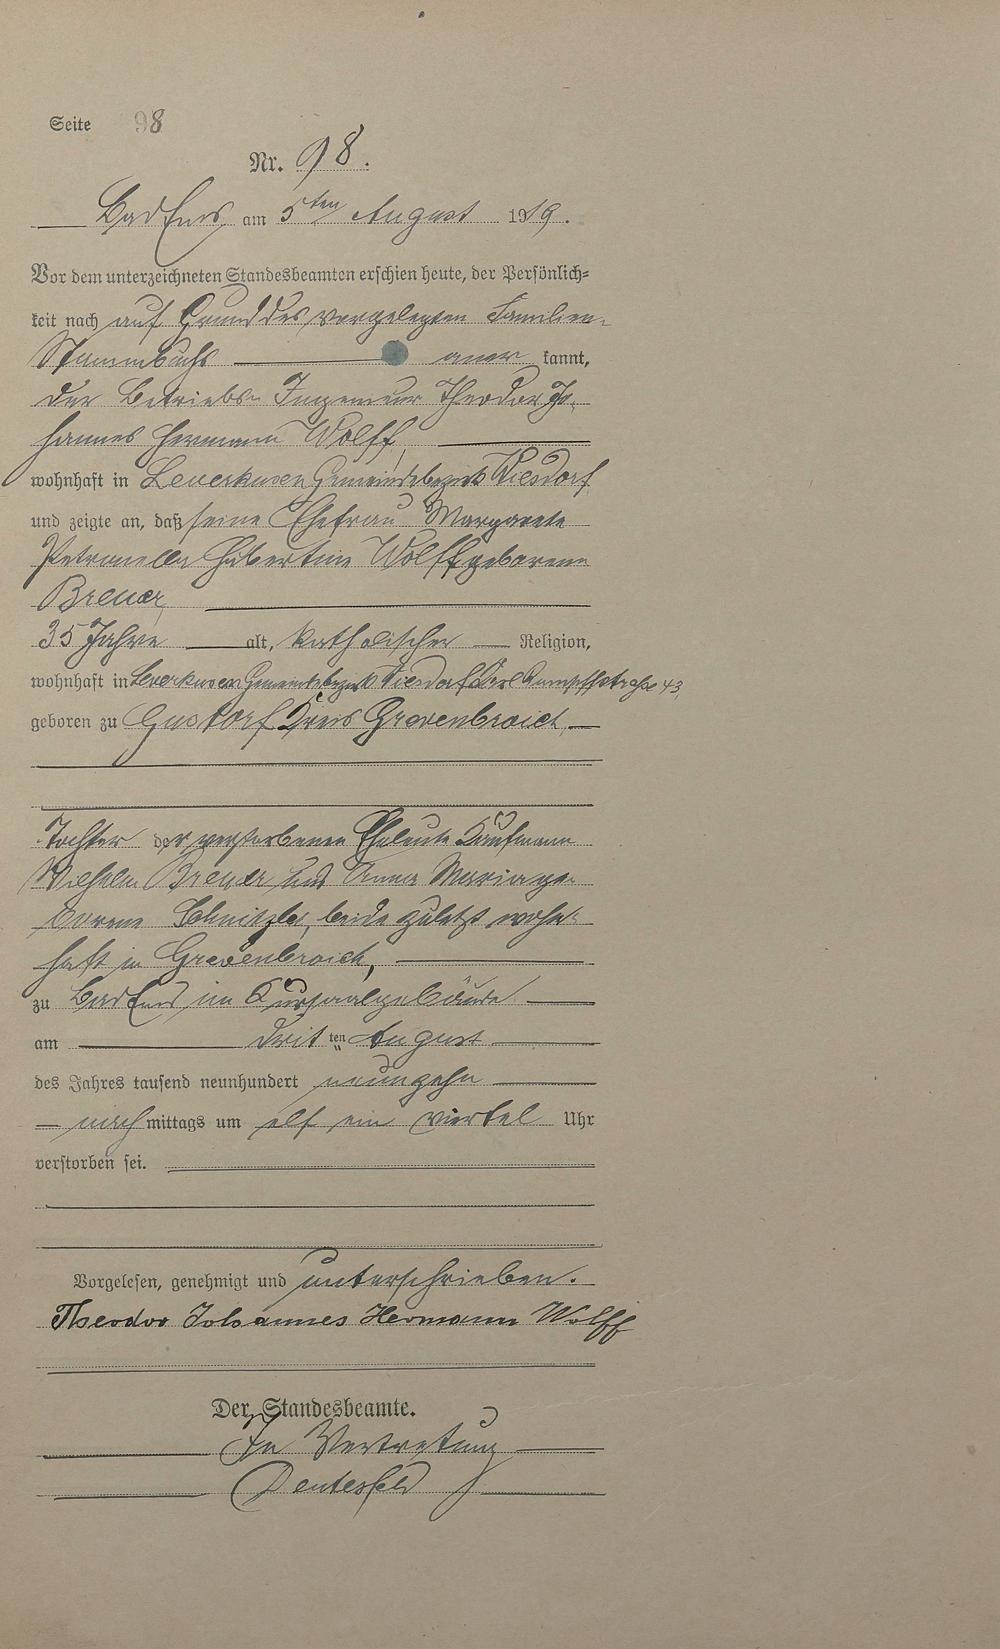 Seite 98
Nr. 98.
Bad Ems, am 5ten August 1919.
Vor dem unterzeichneten Standesbeamten erschien heute, der Persönlich-
keit nach auf Grund des vorgelegten Familien-
Stammbuchs aner kannt,
der Betriebs-Ingenieur Theodor Jo-
hannes Hermann Wolff,
wohnhaft in Leverkusen Gemeindebezirk Wiesdorf
und zeigte an, daß seine Ehefrau Margarete
Petronella Hubertine Wolff geborene
Breuer,
35 Jahre alt, katholischer Religion,
wohnhaft in Leverkusen Gemeindebezirk Wiesdorf Carl Rumpffstraße 43
geboren zu Gustorf Kreis Grevenbroich,
Tochter der verstorbenen Eheleute Kaufmann
Wilhelm Breuer und Anna Maria ge-
borene Schnitzler, beide zuletzt wohn-
haft in Grevenbroich,
zu Bad Ems im Kursaalgebäude
am dritten August
des Jahres tausend neunhundert neunzehn
nachmittags um elf ein viertel Uhr
verstorben sei.
Vorgelesen, genehmigt und unterschrieben.
Theodor Johannes Hermann Wolff
Der Standesbeamte.
In Vertretung